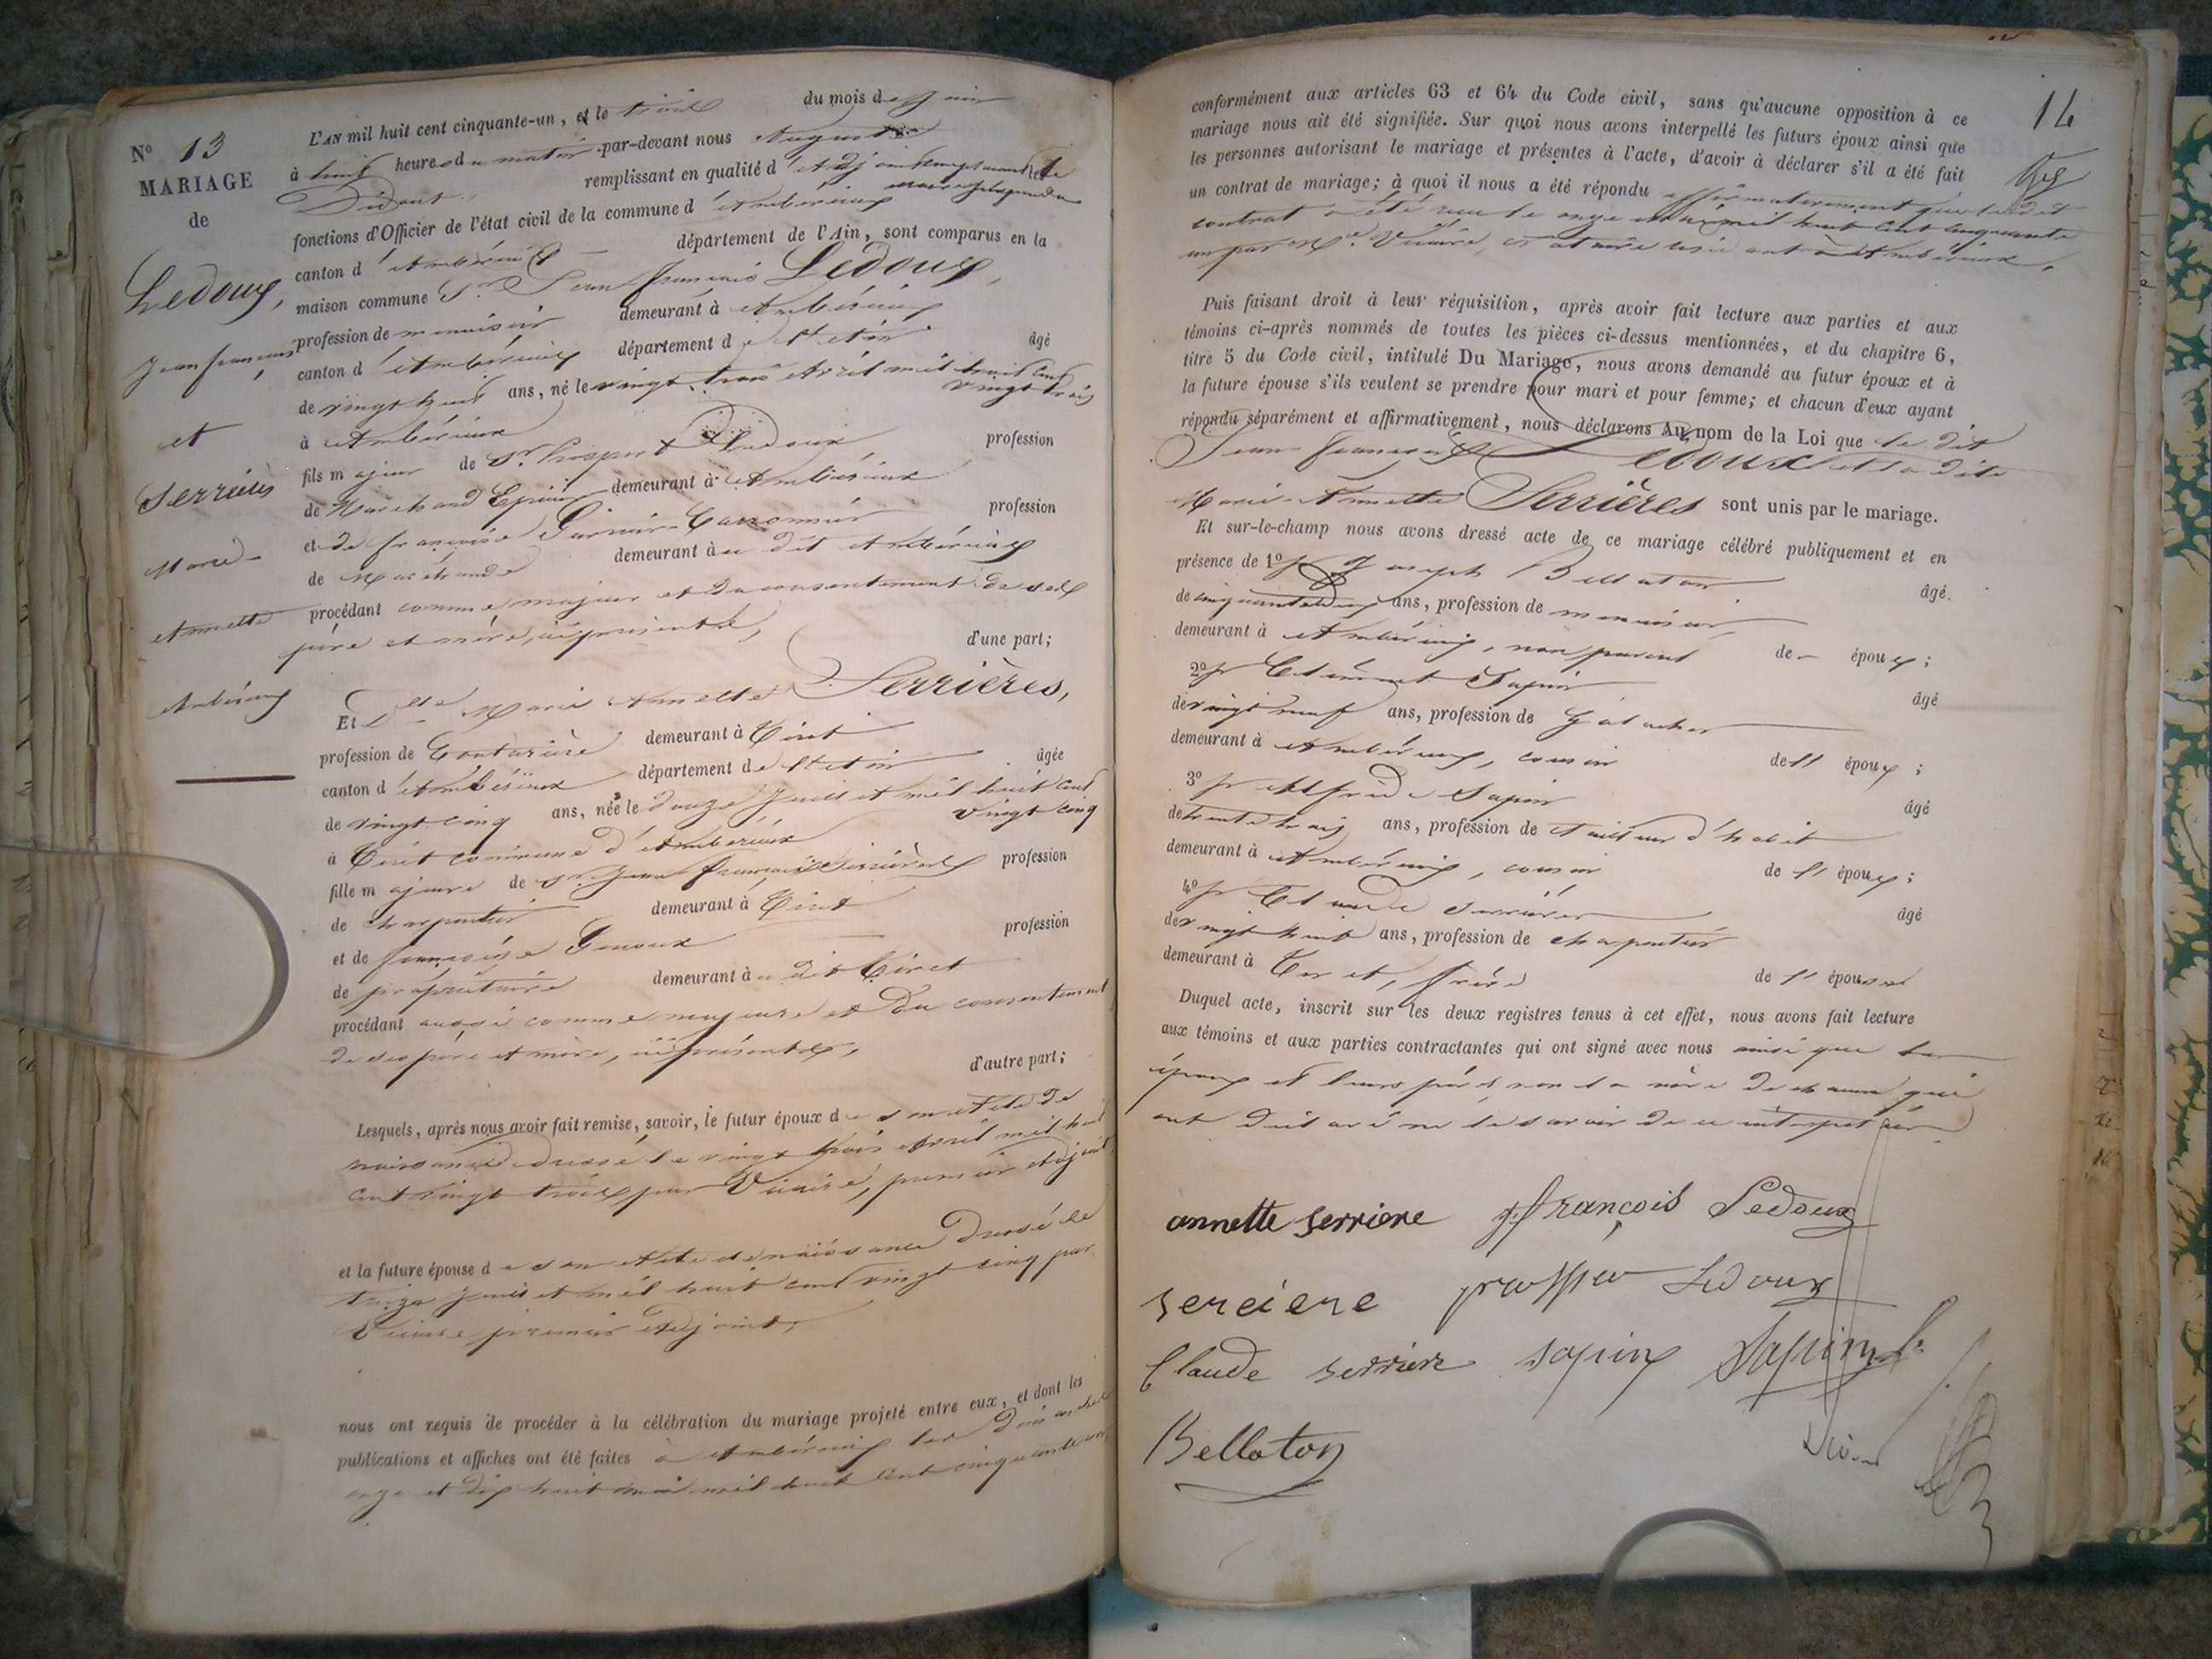 N° 13
MARIAGE
de
Ledoux,
Jean françois
et
Serrières
Marie-
Annette
Ambérieux
L'AN mil huit cent cinquante-un, et le trois du mois de Juin
à huit heures du matin par-devant nous Auguste
Didout remplissant en qualité d'Adjoint remplaçant le
fonctions d'Officier de l'état civil de la commune d'Ambérieux
canton d'Ambérieux département de l'Ain, sont comparus en la
maison commune Sr Jean françois Ledoux,
profession de menuisier demeurant à Ambérieux
canton d'Ambérieux département de l'Ain âgé
de vingt huit ans, né le vingt trois Avril mil huit cent
vingt trois
à Ambérieux
fils majeur de Sr Prosper Ledoux, profession
de Marchand Epicier demeurant à Ambérieux
et de françoise profession
de Marchande demeurant au dit Ambérieux
procédant comme majeur et du consentement de ses
père et mère, ici présents, d'une part;
Et Dlle Marie Annette Serrières,
profession de Couturière demeurant à Tiret
canton d'Ambérieux département de l'Ain âgée
de vingt cinq ans, née le douze Juillet mil huit cent
vingt cinq
à Tiret commune d'Ambérieux
fille majeure de Sr Jean françois Serrières profession
de charpentier demeurant à Tiret
et de françoise Genoux profession
de propriétaire demeurant au dit Tiret
procédant aussi comme majeure et du consentement
de ses père et mère, ici présents, d'autre part;
Lesquels, après nous avoir fait remise, savoir, le futur époux de son Acte de
naissance dressé le vingt trois Avril mil huit
cent vingt trois par premier Adjoint
et la future épouse de son Acte de naissance dressé le
treize Juillet mil huit cent vingt cinq par
premier Adjoint,
nous ont requis de procéder à la célébration du mariage projeté entre eux, et dont les
publications et affiches ont été faites à Ambérieux les Dimanches
onze et dix huit mai mil huit cent cinquante un
14
conformément aux articles 63 et 64 du Code civil, sans qu'aucune opposition à ce
mariage nous ait été signifiée. Sur quoi nous avons interpellé les futurs époux ainsi que
les personnes autorisant le mariage et présentes à l'acte, d'avoir à déclarer s'il a été fait
un contrat de mariage; à quoi il nous a été répondu affirmativement que le dit
contrat a été reçu le onze mai mil huit cent cinquante
un par Me notaire résidant à Ambérieux.
Puis faisant droit à leur réquisition, après avoir fait lecture aux parties et aux
témoins ci-après nommés de toutes les pièces ci-dessus mentionnées, et du chapitre 6,
titre 5 du Code civil, intitulé Du Mariage, nous avons demandé au futur époux et à
la future épouse s'ils veulent se prendre pour mari et pour femme; et chacun d'eux ayant
répondu séparément et affirmativement, nous déclarons Au nom de la Loi que le dit
Jean françois Ledoux et la dite
Marie-Annette Serrières sont unis par le mariage.
Et sur-le-champ nous avons dressé acte de ce mariage célébré publiquement et en
présence de 1° Sr Joseph Bellaton âgé
de cinquante deux ans, profession de menuisier
demeurant à Ambérieux, non parent de époux;
2° Sr Clément Sapin âgé
de vingt neuf ans, profession de
demeurant à Ambérieux, cousin de l'époux;
3° Sr Alfride Sapin âgé
de trente trois ans, profession de Tailleur d'habit
demeurant à Ambérieux, cousin de l'époux;
4° Sr Claude Serrières âgé
de vingt huit ans, profession de charpentier
demeurant à Tiret, frère de l'épouse
Duquel acte, inscrit sur les deux registres tenus à cet effet, nous avons fait lecture
aux témoins et aux parties contractantes qui ont signé avec nous ainsi que les
époux et leurs pères, non la mère de chacun qui
ont déclaré ne le savoir de ce
annette serriere jfrançois Ledoux
serciere prosper Ledoux
Claude serriere sapin Sapin
Bellaton